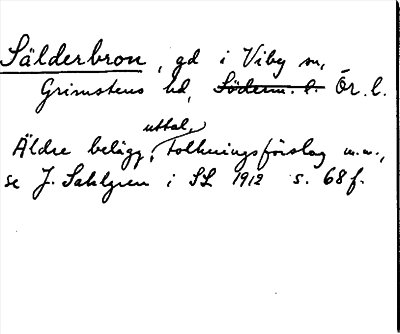 Sälderbron, gd i Viby sn,
Grimstens hd, Söderm. l. Ör. l.
Äldre belägg, uttal, tolkningsförslag m.m.,
se J. Sahlgren i SL 1912 s. 68 f.